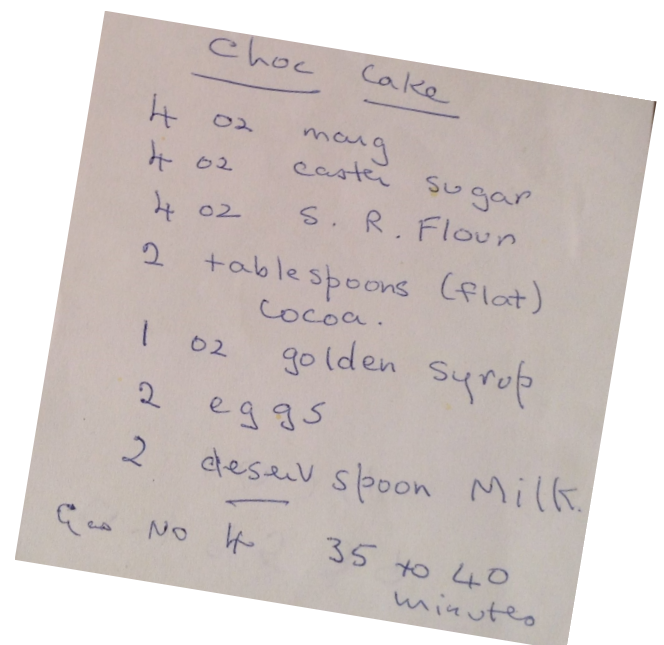 Choc Cake
4 oz marg
4 oz caster sugar
4 oz S. R. Flour
2 tablespoons (flat)
cocoa.
1 oz golden syrup
2 eggs
2 desert spoon Milk.
Gas No 4 35 to 40
minutes